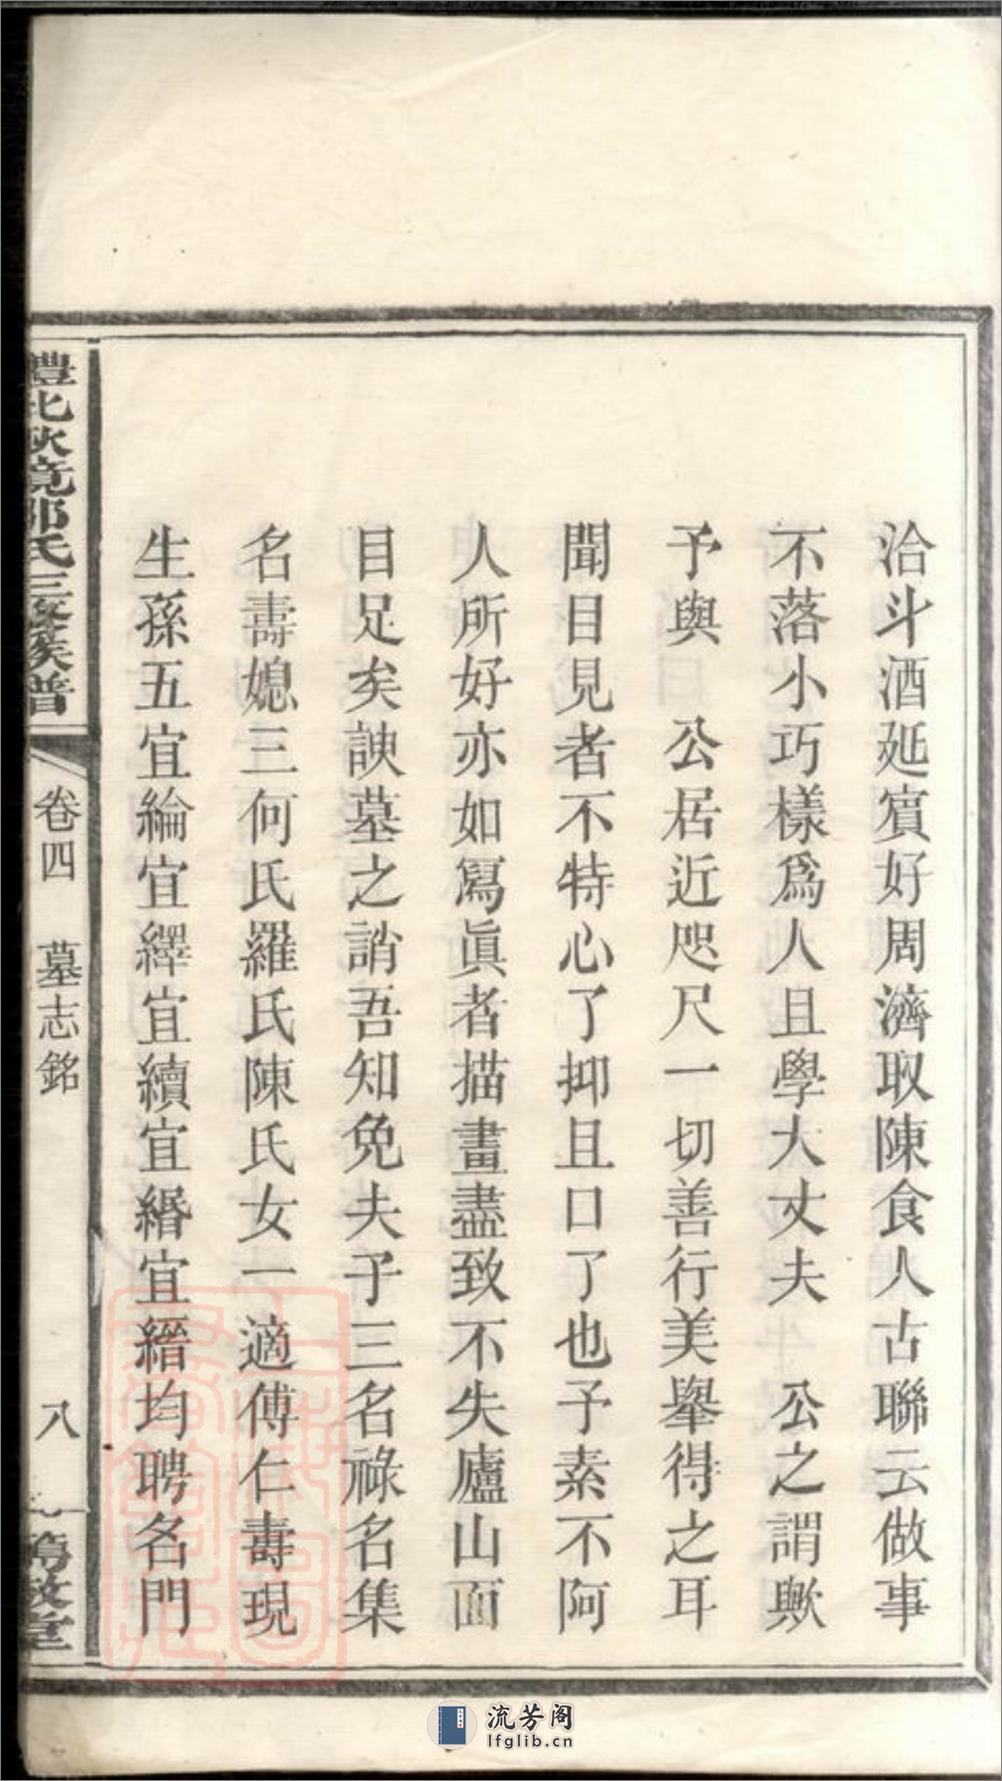 洽斗酒延賓好周濟取陳食人古聯云做事
不落小巧樣爲人且學大丈夫　公之謂歟
予與　公居近咫尺一切善行美舉得之耳
聞目見者不特心了抑且口了也予素不阿
人所好亦如寫眞者描畫盡致不失廬山面
目足矣諛墓之誚吾知免夫子三名祿名集
名壽媳三何氏羅氏陳氏女一適傅仁壽現
生孫五宜綸宜繹宜續宜緡宜縉均聘名門
北 竟 氏三 族譜
卷四　墓志銘
八
堂
流芳阁
lfglib.cn